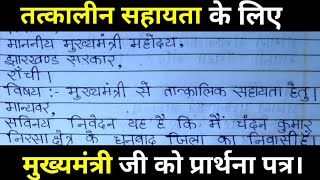 तत्कालीन सहायता के लिए
माननीय मुख्यमंत्री महोदय,
झारखण्ड सरकार,
राँची।
विषय :- मुख्यमंत्री से तात्कालिक सहायता हेतु।
मान्यवर,
सविनय निवेदन यह है कि मैं चंदन कुमार
निरसा क्षेत्र के धनबाद जिला का निवासी हूँ।
मुख्यमंत्री जी को प्रार्थना पत्र।